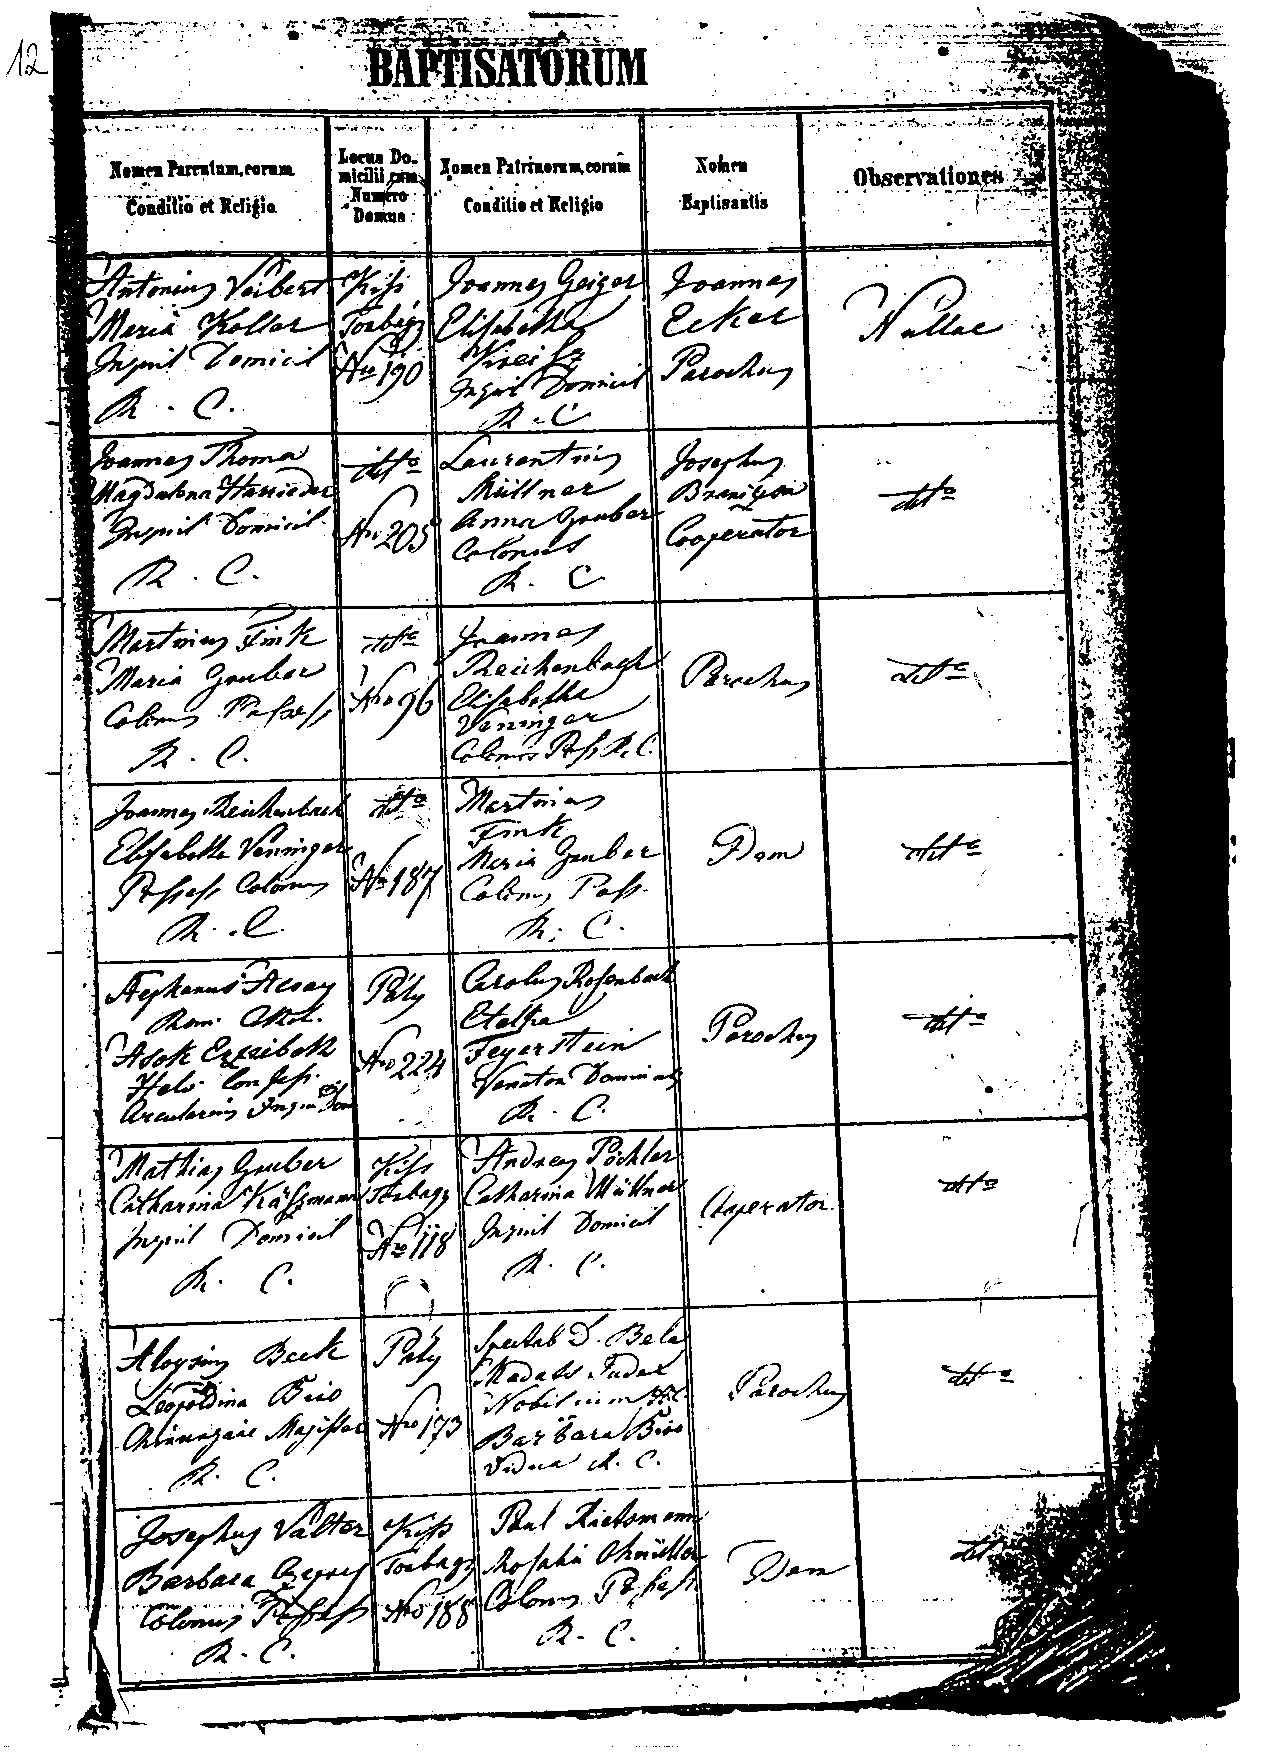 12
BAPTISATORUM
Nomen Parentum, eorum
Conditio et Religio
Locus Do-
micilii cum
Numero
Domus
Nomen Patrinorum, eorum
Conditio et Religio
Nomen
Baptisantis
Observationes
Antonius Veibert
Maria Kollar
Inquil Domicil
R. C.
Kiss
Torbagy
Nro 190
Joannes Geiger
Elisabetha
Inquil Domicil
R. C
Joannes
Ecker
Parochus
Nullae
Joannes Thoma
Magdalena Harrieder
Inquil Domicil
R. C.
dtto
Nro 205
Laurentius
Müllner
Anna Gruber
Colonus
R. C
Josephus
Cooperator
dtto
Martinus Fink
Maria Gruber
Colonus Possess
R. C.
dtto
Nro 96
Joannes
Reichenbach
Elisabetha
Veninger
Colonus Poss R. C.
Parochus
dtto
Joannes Reichenbach
Elisabetha Veninger
Possess Colonus
R. C.
dtto
Nro 187
Martinus
Fink
Maria Gruber
Colonus Poss.
R. C.
Idem
dtto
Stephanus
Rom. Cathol.
Ersebeth
Helv. Confess.
Arcularius Inquil Dom
Páty
Nro 224
Carolus Rosenbach
Etelka
Feyerstein
Venator Dominal
R. C.
Parochus
dtto
Mathias Gruber
Catharina Käszmann
Inquil Domicil
R. C.
Kiss
Torbagy
Nro 118
Andreas Pöchler
Catharina Müllner
Inquil Domicil
R. C.
Cooperator
dtto
Aloysius Beck
Leopoldina Biro
Chirurgiae Magister
R. C.
Páty
Nro 173
Spectab D. Bela
Judex
Nobilium H.C.
Barbara Biro
Vidua R. C.
Parochus
dtto
Josephus Valter
Barbara
Colonus Possess
R. C.
Kiss
Torbagy
Nro 188
Paul Rietzmann
Rosalia
Colonus Possess
R. C.
Idem
dtto